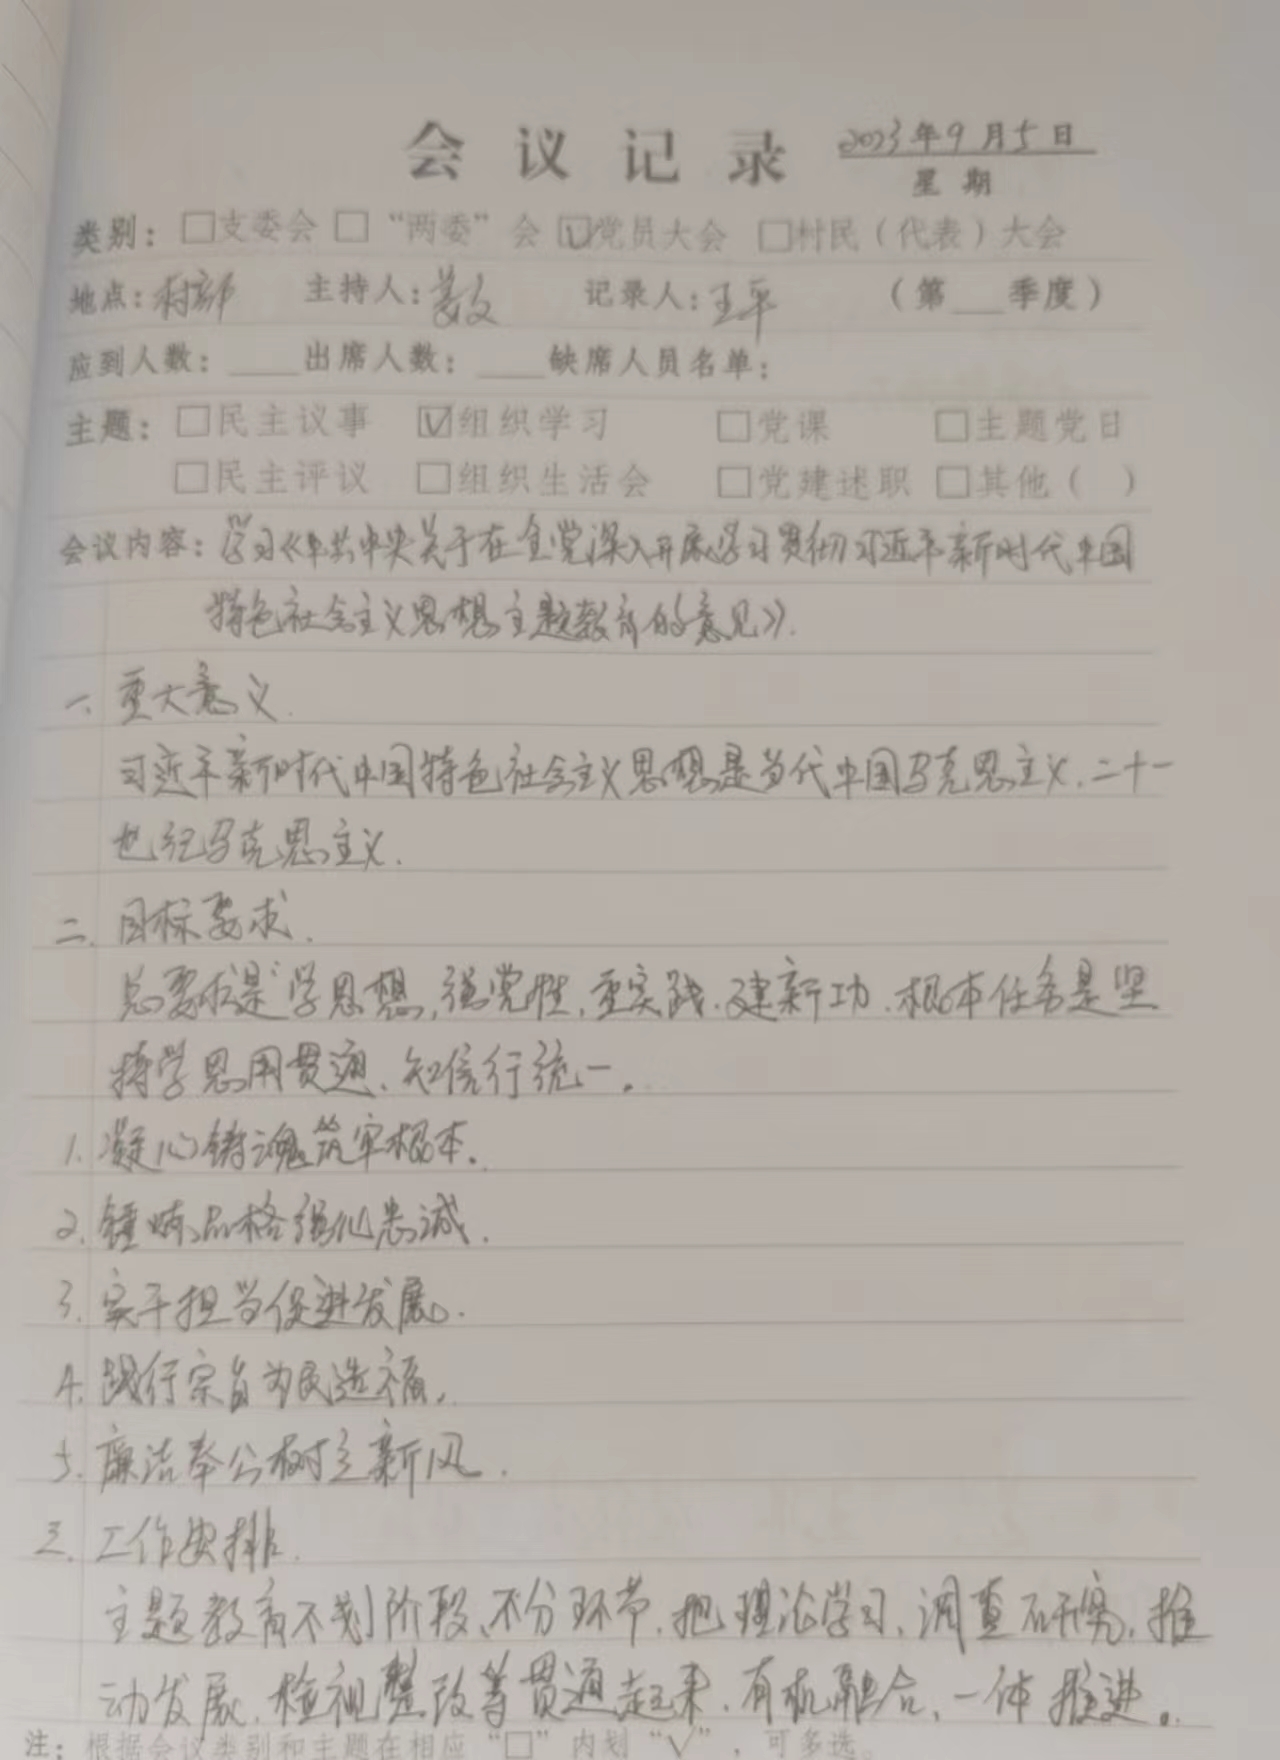 会议记录 2023年9月5日
星期
类别：□支委会 □“两委”会 ☑党员大会 □村民（代表）大会
地点：村部 主持人： 记录人：王平 （第___季度）
应到人数：____出席人数：____缺席人员名单：
主题：□民主议事 ☑组织学习 □党课 □主题党日
□民主评议 □组织生活会 □党建述职 □其他（ ）
会议内容：学习《中共中央关于在全党深入开展学习贯彻习近平新时代中国
特色社会主义思想主题教育的意见》.
一、重大意义.
习近平新时代中国特色社会主义思想是当代中国马克思主义、二十一
世纪马克思主义.
二、目标要求.
总要求是“学思想,强党性,重实践、建新功、根本任务是坚
持学思用贯通、知信行统一。
1. 凝心铸魂筑牢根本。
2. 锤炼品格强化忠诚.
3. 实干担当促进发展.
4. 践行宗旨为民造福.
5. 廉洁奉公树立新风.
三、工作安排.
主题教育不划阶段、不分环节、把理论学习、调查研究、推
动发展、检视整改等贯通起来、有机融合、一体推进。
注：根据会议类别和主题在相应“□”内划“√”，可多选。